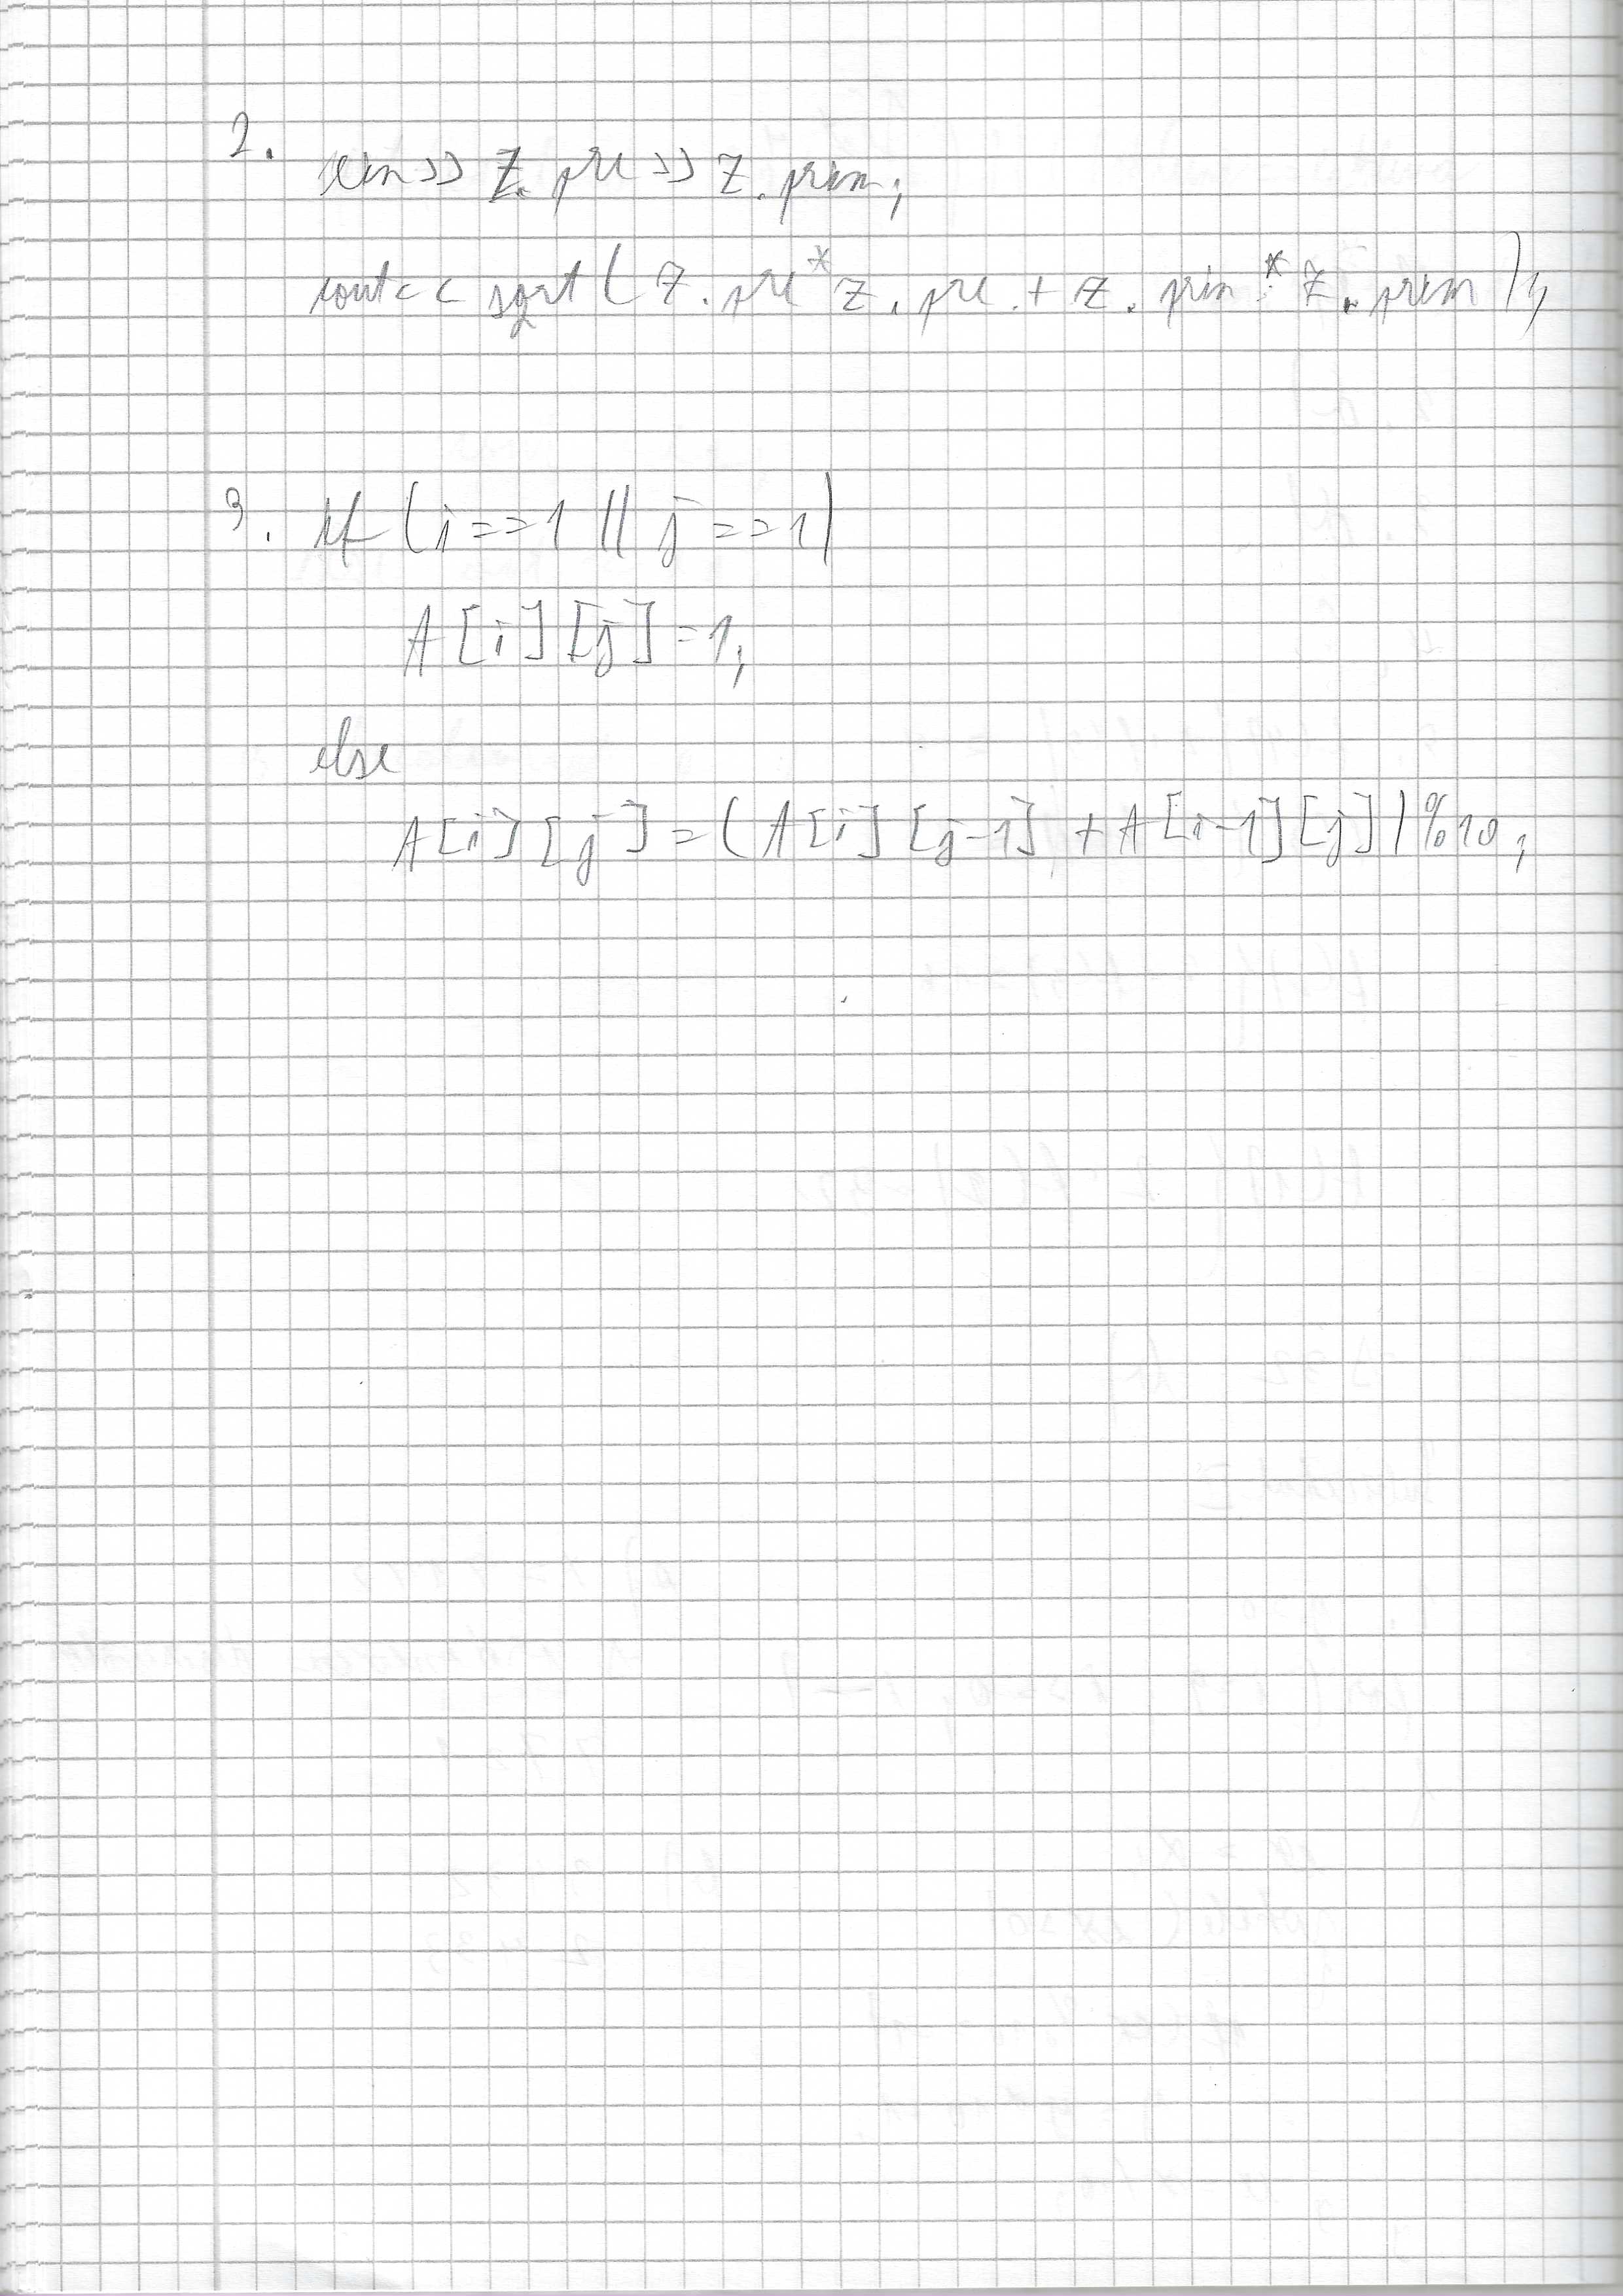 2.
cin>> z.pre >> z.pim;
cout<< sqrt(z.pre*z.pre + z.pim*z.pim);
3. if (i==1 || j==1)
A[i][j]=1;
else
A[i][j]=(A[i][j-1]+A[i-1][j])%10;